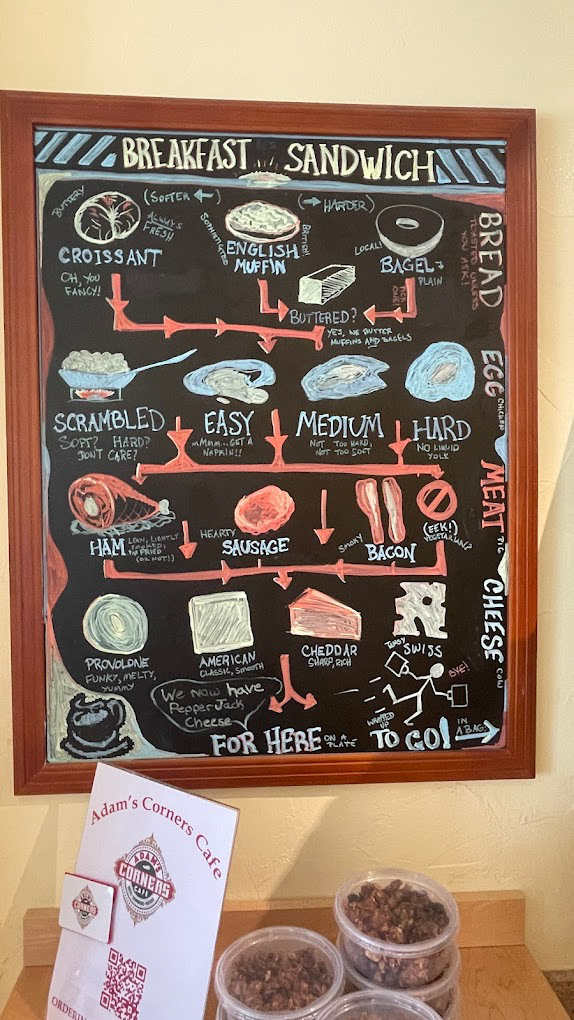 BREAKFAST SANDWICH
BUTTERY
(SOFTER ←)
ALWAYS
FRESH
SOPHISTICATED
BRITISH!
(→ HARDER)
LOCAL!
CROISSANT
ENGLISH
MUFFIN
BAGEL
PLAIN
BREAD
TOASTED UNLESS
YOU ASK!
OH, YOU
FANCY!
PICK
ONE!
BUTTERED?
YES, WE BUTTER
MUFFINS AND BAGELS
EGG
CHICKEN
SCRAMBLED
SOFT? HARD?
DON'T CARE?
EASY
MMMM...GET A
NAPKIN!!
MEDIUM
NOT TOO HARD,
NOT TOO SOFT
HARD
NO LIQUID
YOLK
MEAT
PIG
HAM
LEAN, LIGHTLY
SMOKED,
PAN FRIED
(OR NOT!)
HEARTY
SAUSAGE
SMOKY
BACON
(EEK!)
VEGETARIAN?
CHEESE
COW
PROVOLONE
FUNKY, MELTY,
YUMMY
AMERICAN
CLASSIC, SMOOTH
CHEDDAR
SHARP, RICH
TANGY
SWISS
We now have
Pepper Jack
Cheese
BYE!
FOR HERE
ON A
PLATE
WRAPPED
UP
TO GO!
IN
A BAG
Adam's Corners Cafe
ADAM'S
CORNERS
CAFE
CORNERS
ORDERING